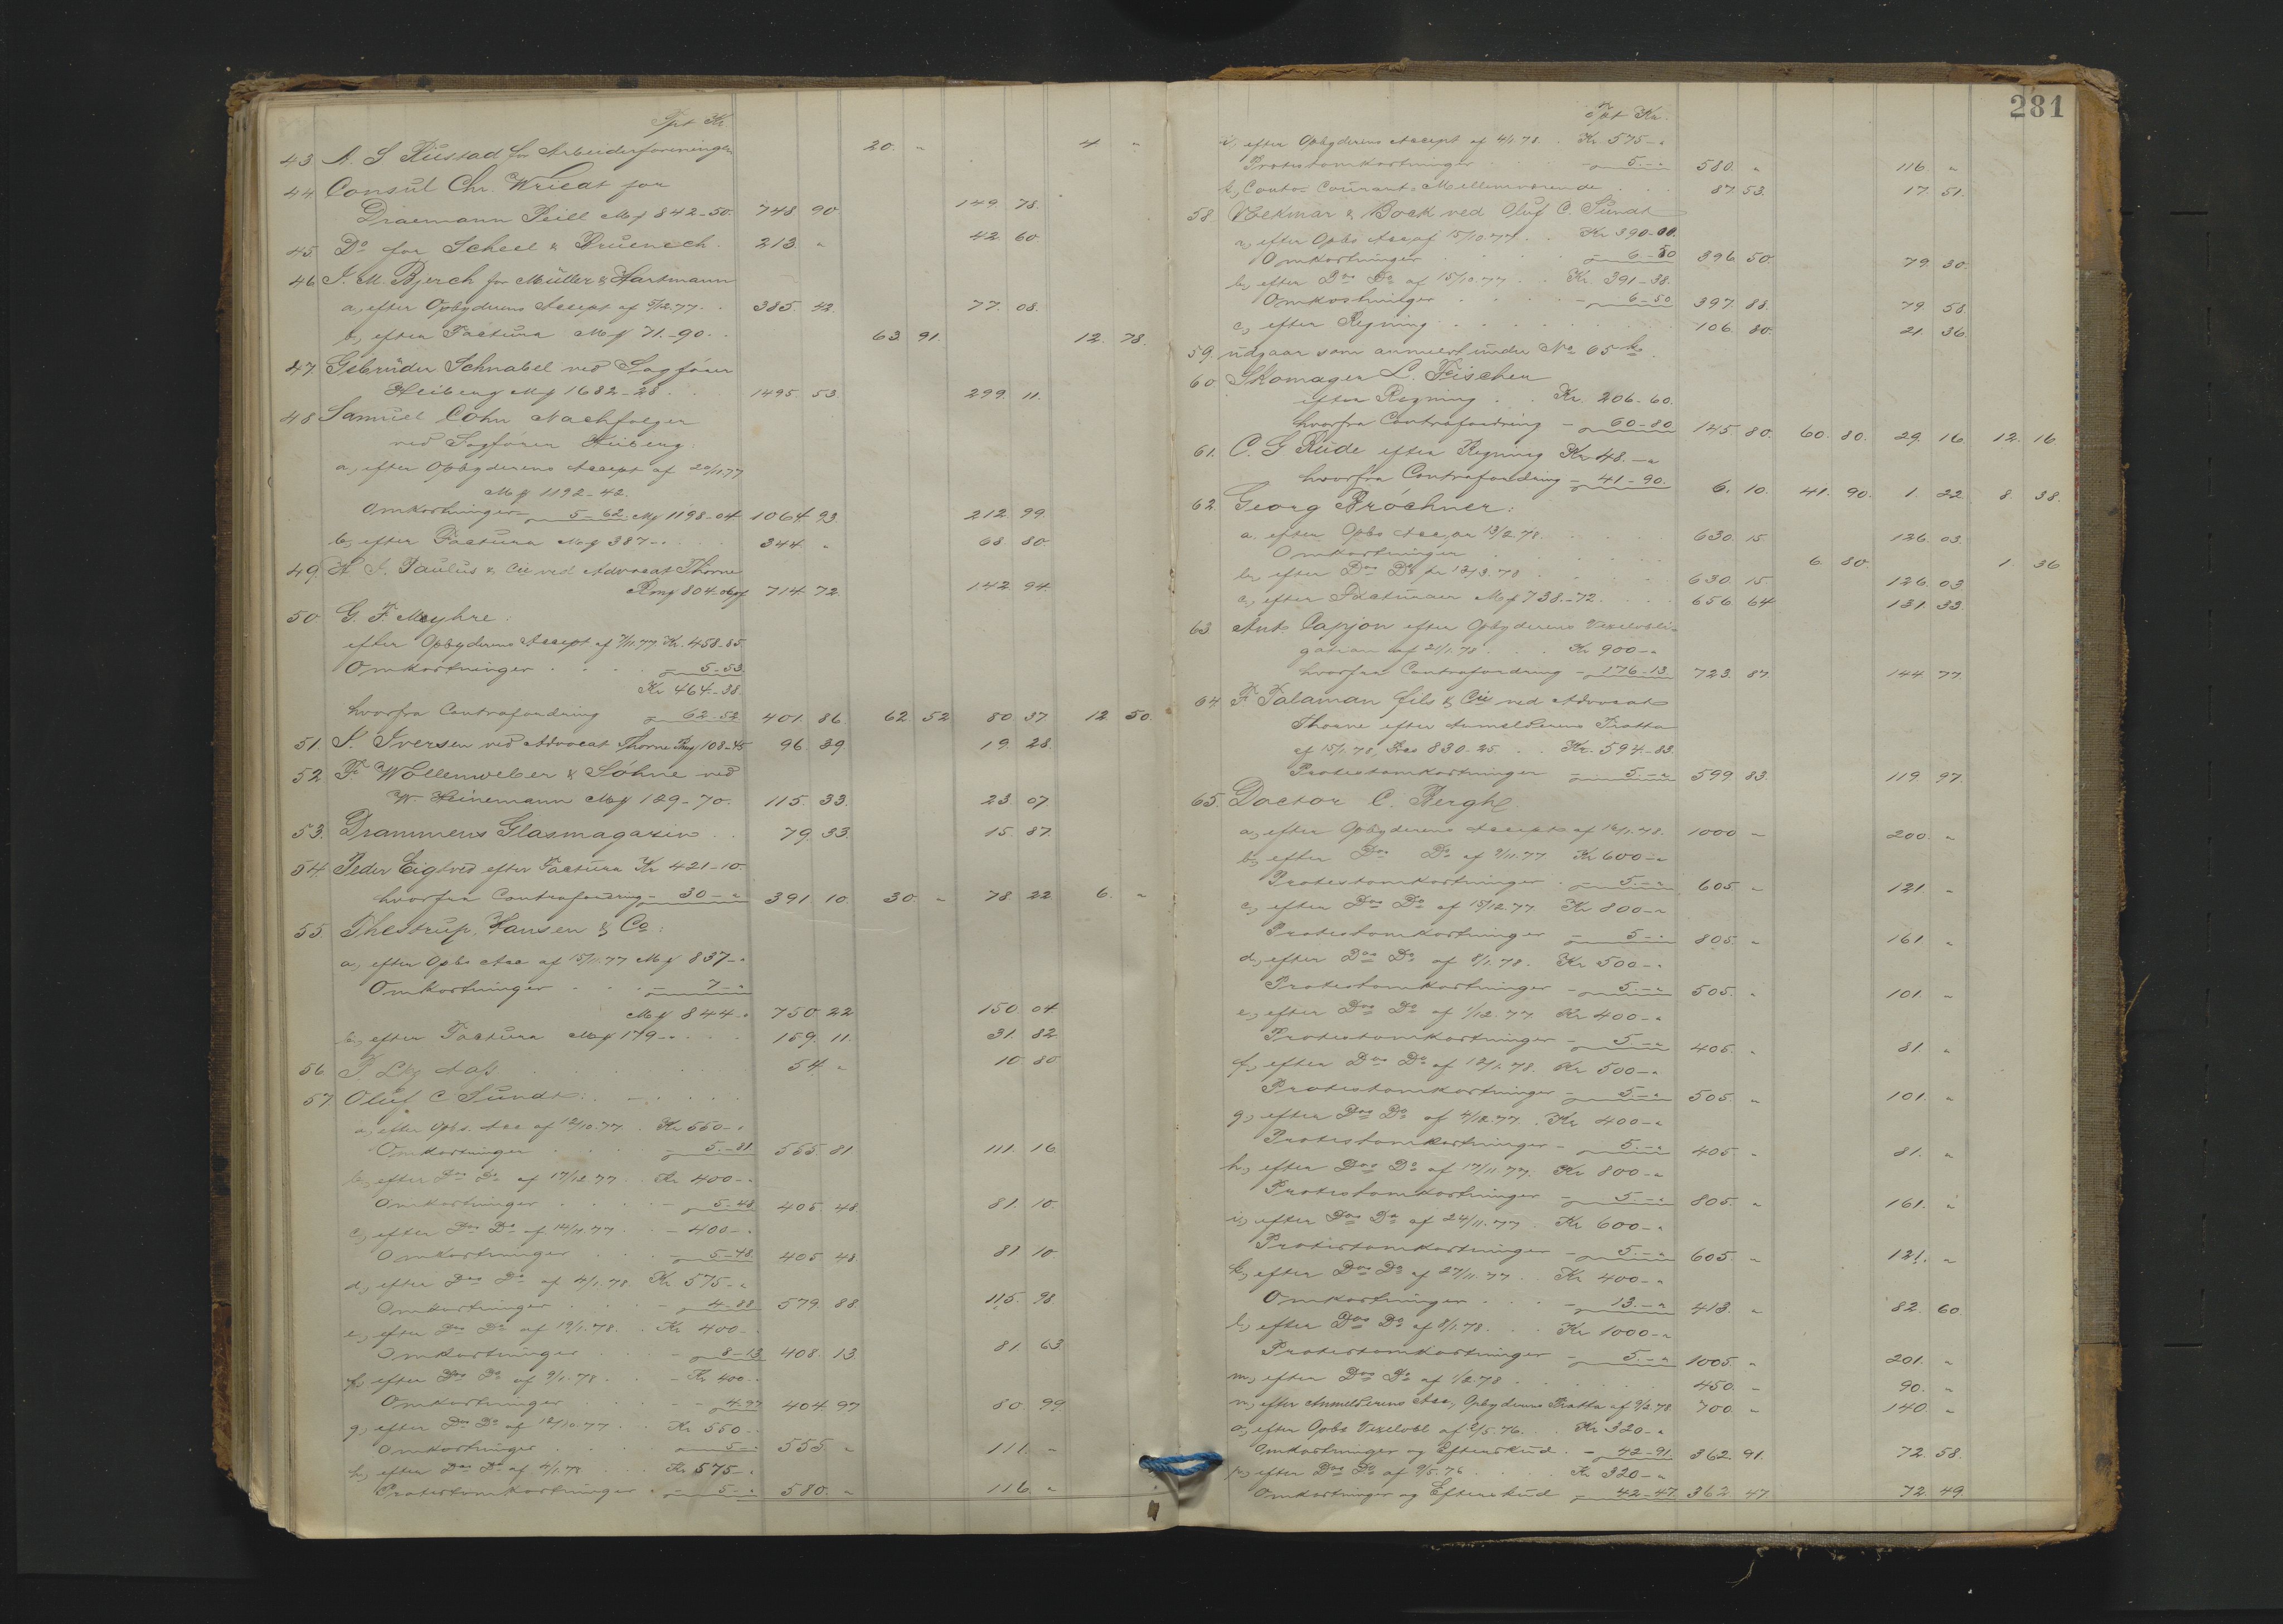 Tpt Kr
43. A. S Rustad for Arbeiderforeningen 20. „ 4 „
44 Consul Chr. Wriedt for
Draemann Peill Mf 842-50. 748. 90. 149. 78.
45. Do for Scheel & Bruenech. 213. „ 42. 60.
46 J. M. Bjerch for Müller & Hartmann
a, efter Opbyderens Accept af 5/12.77. . 385. 42. 77. 08.
b, efter Factura Mf 71.-90. . 63. 91. 12. 78.
47. Gebrüder Schnabel ved Sagfører
Heiberg Mf 1682-28 . . . 1495. 53. 299. 11.
48 Samuel Cohn Nachfolger
ved Sagfører Heiberg:
a, efter Opbyderens Accept af 20/11.77
Mf 1192-42.
Omkostninger - 5-62. Mf 1198-04 1064. 93. 212. 99.
b, efter Factura Mf 387-„ . . . 344. „ 68. 80.
49. H. J. Paulus & Cie ved Advocat Thorne
Rmf 804.-06pf 714. 72. 142. 94.
50. G. F. Meyhre:
efter Opbyderens Accept af 7/11.77 Kr. 458-85.
Omkostninger . . . . - 5-53.
Kr 464-38.
hvorfra Contrafordring - 62-52 401. 86. 62. 52. 80. 37. 12. 50.
51. S. Iversen ved Advocat Thorne Rmf 108-45 96. 39. 19. 28.
52. F. Wollenweber & Söhne ved
W. Heinemann Mf 129-70. 115. 33. 23. 07.
53. Drammens Glasmagazin . . 79. 33. 15. 87.
54. Peder Eigtved efter Factura Kr 421-10.
hvorfra Contrafordring - 30-„ 391. 10. 30. „ 78. 22. 6. „
55. Thestrup, Hansen & Co:
a, efter Opbs Acc af 15/11.77 Mf 837-„
Omkostninger . . . - 7-„
Mf 844-„ 750. 22. 150. 04.
b, efter Factura Mf 179-„ . . . 159. 11. 31. 82.
56. . . . . 54. „ 10. 80
57. Oluf C Sundt: . . . .
a, efter Opbs. Acc af 12/10.77. . Kr 550-„
Omkostninger . . . . - 5.-81. 555. 81. 111. 16.
b, efter Dos Do af 17/12.77 . Kr 400-„
Omkostninger . . . . - 5-48. 405. 48. 81. 10.
c, efter Dos Do af 14/11.77 . . - 400-„
Omkostninger . . . - 5-48. 405. 48. 81. 10.
d, efter Dos Do af 4/1.78. Kr 575-„
Omkostninger . . . - 4-88. 579. 88. 115. 98.
e, efter Dos Do af 19/1.78. . Kr 400-„
Omkostninger . . . - 8-13 408. 13. 81. 63.
f, efter Dos Do af 9/1.78 . . - Kr 400-„
Omkostninger . . . - 4.97 404. 97. 80. 99.
g, efter Dos Do af 12/10.77 . . Kr 550-„
Omkostninger . . . . - 5-„ 555. „ 111. „
h, efter Dos Do af 4/1.78 . . Kr 575-„
Protestomkostninger - 5-„ 580. „ 116. „
281
Tpt Kr.
i, efter Opbyderens Accept af 4/1.78. . Kr 575-„
Protestomkostninger . . - 5.-„ 580. „ 116. „
k, Conto Courant-Mellemværende . . . 87. 53. 17. 51.
58. Volkmar & Bock ved Oluf C. Sundt
a, efter Opbs Acc af 15/10.77 . . Kr 390-00.
Omkostninger . . . . - 6.-50 396. 50. 79. 30.
b, efter Dos Do af 15/10.77 . . Kr. 391-38.
Omkostninger . . . . - 6-50 397. 88. 79. 58.
c, efter Regning . . . . . . 106. 80. 21. 36.
59. udgaar som anmeldt under No 65
60. Skomager L. Fischer
efter Regning . . Kr. 206-60.
hvorfra Contrafordring - 60-80 145. 80. 60. 80. 29. 16. 12. 16.
61. C. G Rude efter Regning Kr 48.-„
hvorfra Contrafordring - 41-90. 6. 10. 41. 90. 1. 22. 8. 38.
62. Georg Bróchner:
a. efter Opbs Acc pr 13/2.78. . . . 630. 15. 126. 03.
Omkostninger . . . . . 6. 80. 1. 36
b, efter Dos Do pr 13/3.78 . . . 630. 15. 126. 03
c, efter Facturaer Mf 738.-72. . . . 656. 64. 131. 33.
63. Ant. Capjon efter Opbyderens Vexelobli-
gation af 21/1.78 . . . Kr 900-„
hvorfra Contrafordring - 176-13. 723. 87. 144. 77.
64. F Talaman fils & Cie ved Advocat
Thorne efter Anmelderens Tratta
af 15/1.78, Frcs 830-25. . . Kr. 594.-83.
Protestomkostninger - 5.-„ 599. 83. 119. 97.
65. Doctor C. Bergh
a, efter Opbyderens Accept af 16/1.78. 1000 - 200. „
b, efter Dos Do af 9/11.77. Kr 600-„
Protestomkostninger . - 5.-„ 605. „ 121. „
c, efter Dos Do af 15/12.77. Kr 800-„
Protestomkostninger - 5-„ 805. „ 161. „
d, efter Dos Do af 8/1.78. Kr 500-„
Protestomkostninger - 5.-„ 505. „ 101. „
e, efter Dos Do af 1/12.77. Kr 400-„
Protestomkostninger - 5.-„ 405. „ 81. „
f, efter Dos Do af 12/1.78. Kr 500-„
Protestomkostninger - 5.-„ 505. „ 101. „
g, efter Dos Do af 4/12.77. . Kr 400-„
Protestomkostninger - 5.-„ 405. „ 81. „
h, efter Dos Do af 17/11.77. Kr 800-„
Protestomkostninger - 5.-„ 805. „ 161. „
i, efter Dos Do af 24/11.77. Kr 600-„
Protestomkostninger - 5.-„ 605. „ 121. „
k, efter Dos Do af 27/11.77 . . Kr 400-„
Omkostninger . . . - 13.-„ 413. „ 82. 60.
l, efter Dos Do af 8/1.78. . . Kr 1000-„
Protestomkostninger - 5.-„ 1005. „ 201. „
m, efter Dos Do af 1/2.78 . . . . 450. - 90. „
n, efter Anmelderens Acc, Opbyderens Tratta af 9/2.78 700. „ 140. „
o, efter Opbs Vexelobl af 2/5.76. . . Kr 320-„
Omkostninger og Efterskud. - 42-91. 362. 91. 72. 58.
p, efter Dos Do af 9/5.76 . . . Kr 320-„
Omkostninger og Efterskud - 42-47. 362. 47. 72. 49.